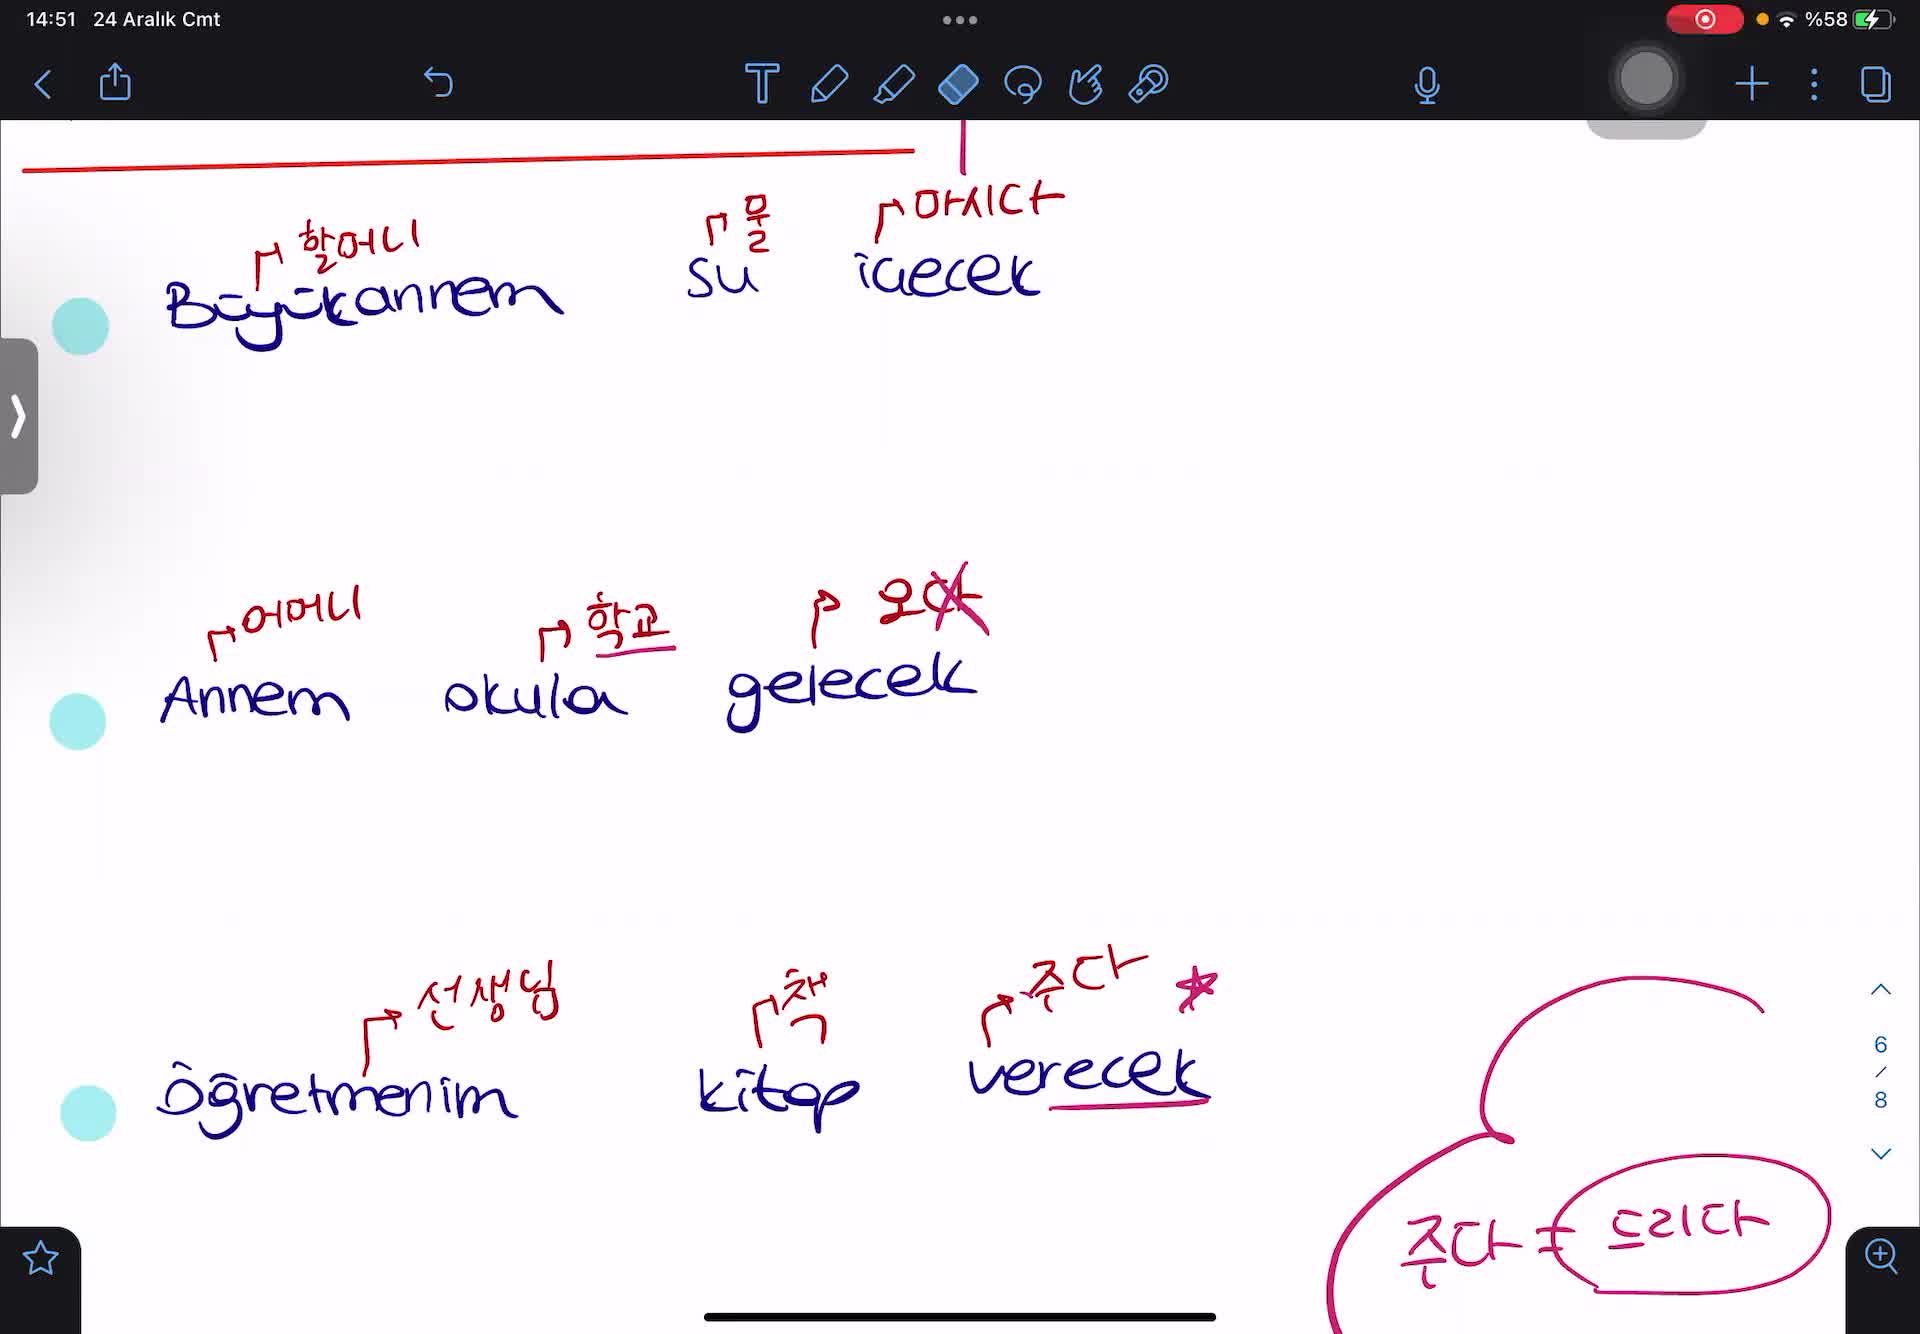 14:51 24 Aralık Cmt %58
할머니 물 마시다
Büyükannem su içecek
어머니 학교 오다
Annem okula gelecek
선생님 책 주다
Öğretmenim kitap verecek
6
/
8
주다 = 드리다